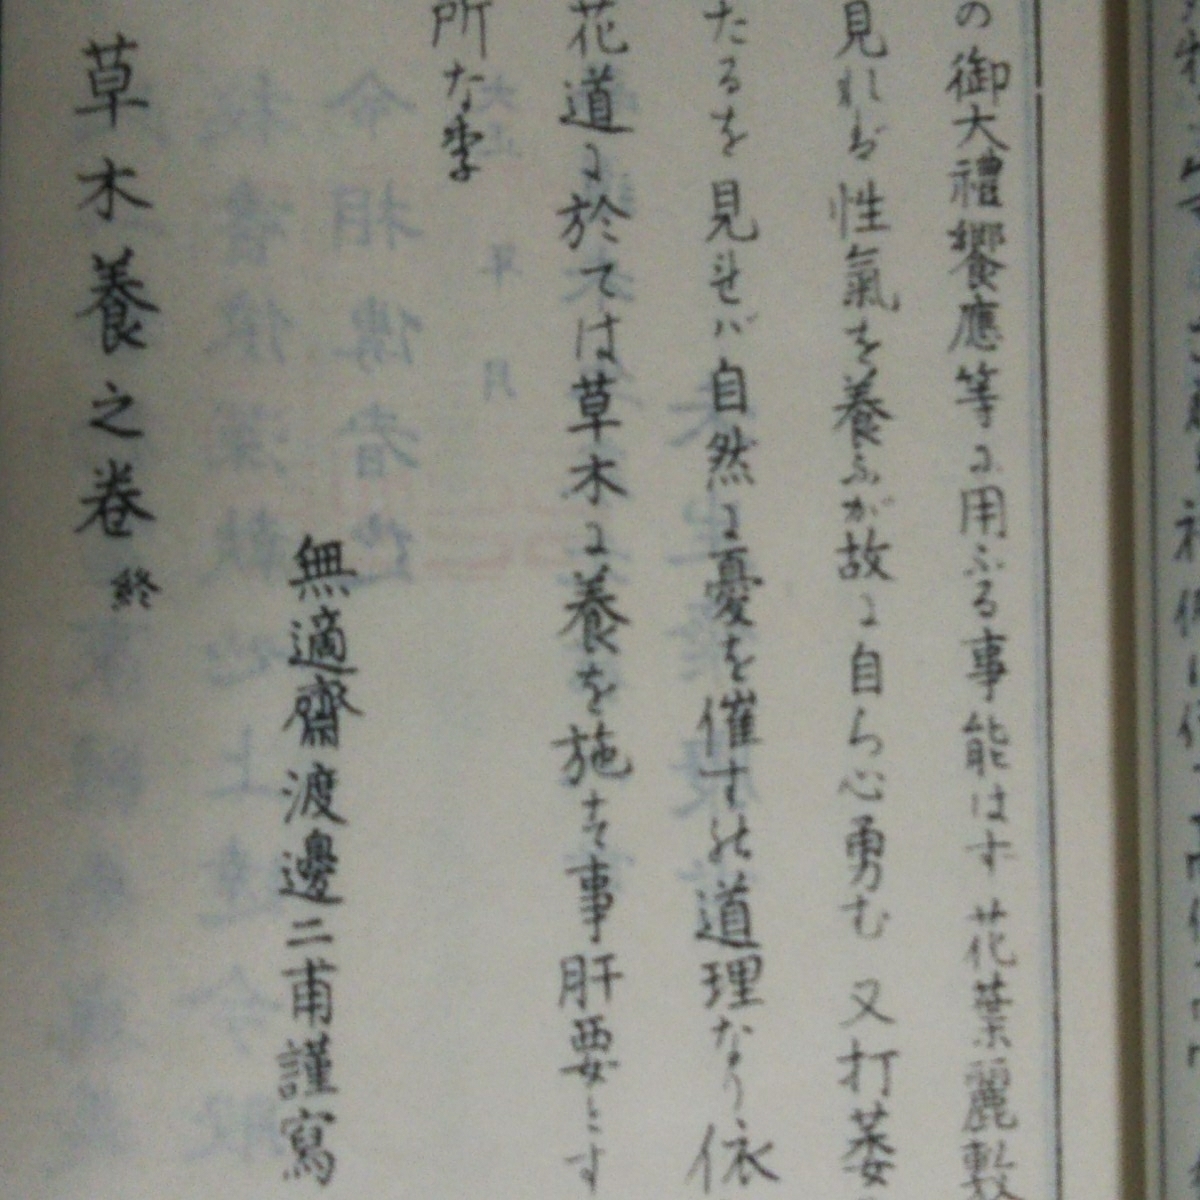 の御大禮饗應等に用ふる事能はす花葉麗敷
見れば性氣を養ふが故に自ら心勇む又打萎
たるを見せバ自然に憂を催すの道理なり依
花道に於ては草木に養を施す事肝要とす
所な李
無適齋渡邊二甫謹寫
草木養之卷終